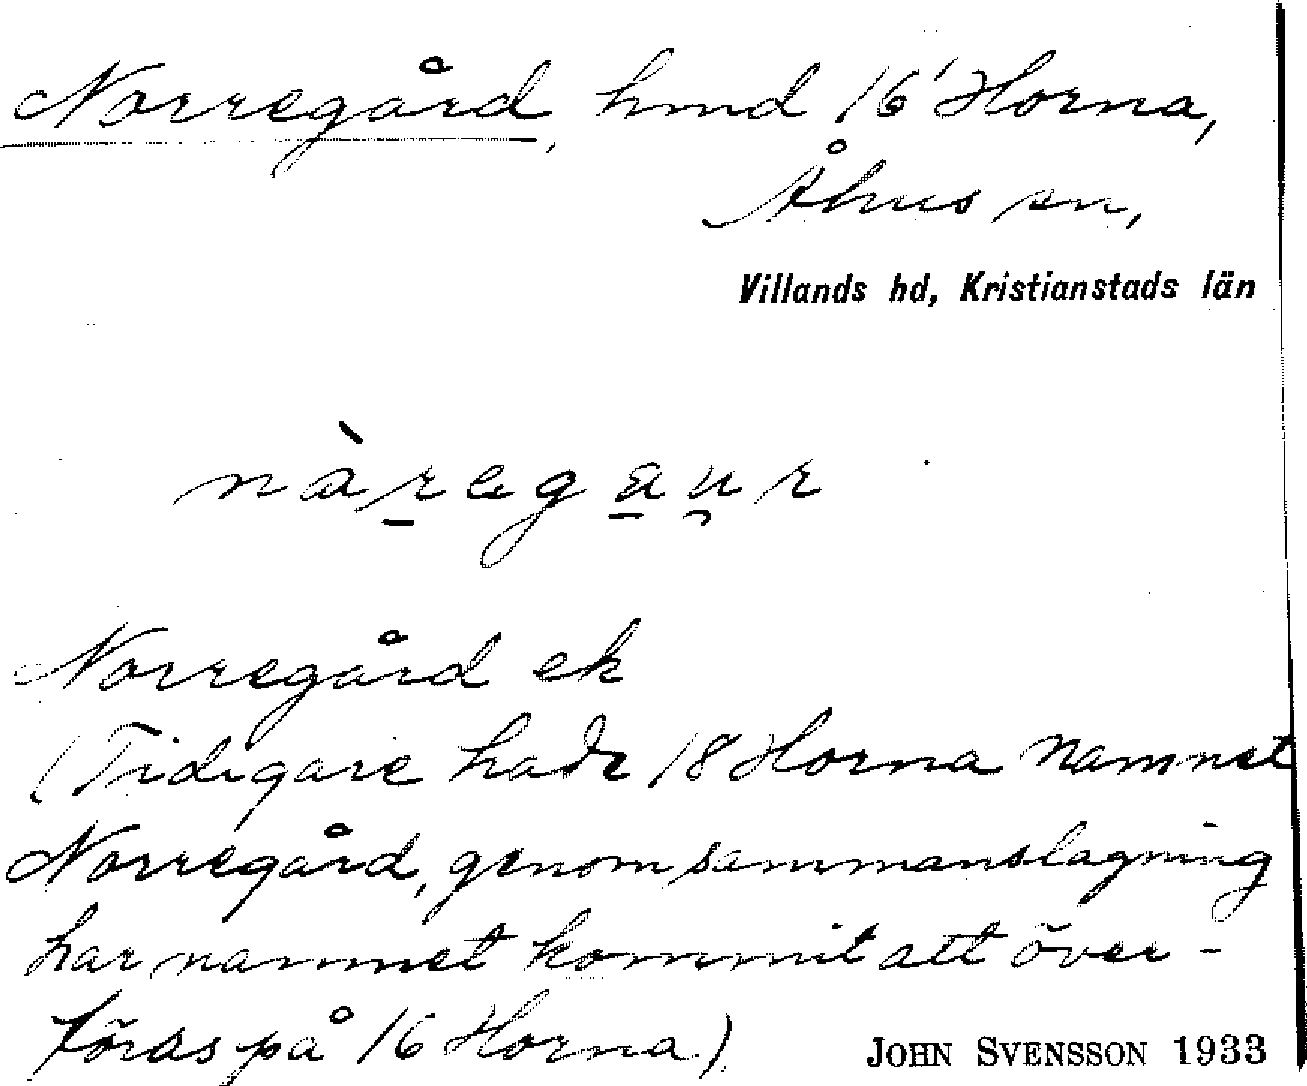 Norregård, hmd 16' Horna,
Åhus sn,
Villands hd, Kristianstads län
nàregaur
Norregård ek
(Tidigare hade 18 Horna namnet
Norregård, genom sammanslagning
har namnet kommit att över-
föras på 16 Horna)
JOHN SVENSSON 1933